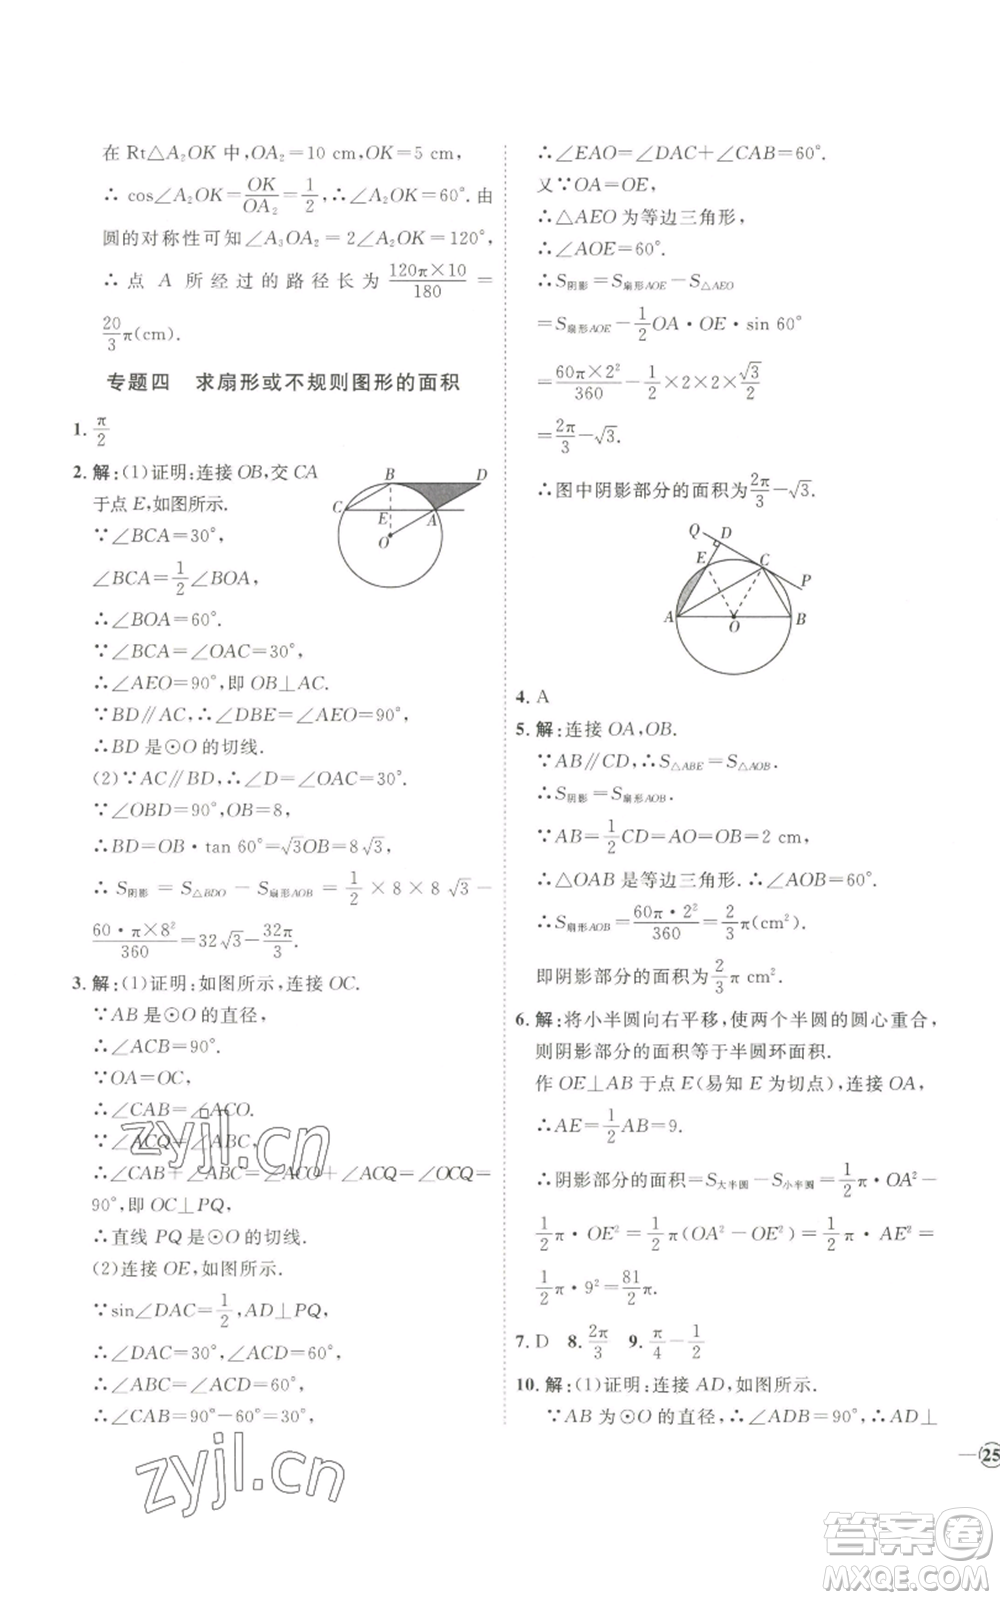 在 Rt△A₂OK 中,OA₂=10 cm,OK=5 cm,
∴ cos∠A₂OK=OK/OA₂=1/2,∴∠A₂OK=60°. 由
圆的对称性可知∠A₃OA₂=2∠A₂OK=120°,
∴ 点 A 所 经 过 的 路 径 长 为 120π×10/180 =
20/3 π(cm).
专题四 求扇形或不规则图形的面积
1. π/2
2. 解:(1)证明:连接 OB,交 CA
于点 E,如图所示.
∵∠BCA=30°,
∠BCA=1/2∠BOA,
∴∠BOA=60°.
∵∠BCA=∠OAC=30°,
∴∠AEO=90°,即 OB⊥AC.
∵BD∥AC,∴∠DBE=∠AEO=90°,
∴BD 是⊙O 的切线.
(2)∵AC∥BD,∴∠D=∠OAC=30°.
∵∠OBD=90°,OB=8,
∴BD=OB·tan 60°=√3OB=8√3,
∴ S阴影 = S△BDO − S扇形AOB = 1/2 × 8 × 8√3 −
60·π×8²/360=32√3−32π/3.
B
D
C
E
A
O
3. 解:(1)证明:如图所示,连接 OC.
∵AB 是⊙O 的直径,
∴∠ACB=90°.
∵OA=OC,
∴∠CAB=∠ACO.
∵∠ACQ=∠ABC,
∴∠CAB+∠ABC=∠ACO+∠ACQ=∠OCQ=
90°,即 OC⊥PQ,
∴直线 PQ 是⊙O 的切线.
(2)连接 OE,如图所示.
∵sin∠DAC=1/2,AD⊥PQ,
∴∠DAC=30°,∠ACD=60°.
∴∠ABC=∠ACD=60°,
∴∠CAB=90°−60°=30°,
∴∠EAO=∠DAC+∠CAB=60°.
又∵OA=OE,
∴△AEO 为等边三角形,
∴∠AOE=60°.
∴S阴影=S扇形AOE−S△AEO
=S扇形AOE−1/2OA·OE·sin 60°
=60π×2²/360−1/2×2×2×√3/2
=2π/3−√3.
∴图中阴影部分的面积为2π/3−√3.
Q
D
E
C
P
A
O
B
4. A
5. 解:连接 OA,OB.
∵AB∥CD,∴S△ABE=S△AOB.
∴S阴影=S扇形AOB.
∵AB=1/2CD=AO=OB=2 cm,
∴△OAB 是等边三角形.∴∠AOB=60°.
∴S扇形AOB=60π·2²/360=2/3π(cm²).
即阴影部分的面积为2/3π cm².
6. 解:将小半圆向右平移,使两个半圆的圆心重合,
则阴影部分的面积等于半圆环面积.
作 OE⊥AB 于点 E(易知 E 为切点),连接 OA,
∴AE=1/2AB=9.
∴阴影部分的面积=S大半圆−S小半圆=1/2π·OA²−
1/2π·OE²=1/2π(OA²−OE²)=1/2π·AE²=
1/2π·9²=81/2π.
7. D 8. 2π/3 9. π/4−1/2
10. 解:(1)证明:连接 AD,如图所示.
∵AB 为⊙O 的直径,∴∠ADB=90°,∴AD⊥
25
zyjl.cn
zyjl.cn
答案卷
MXQE.COM